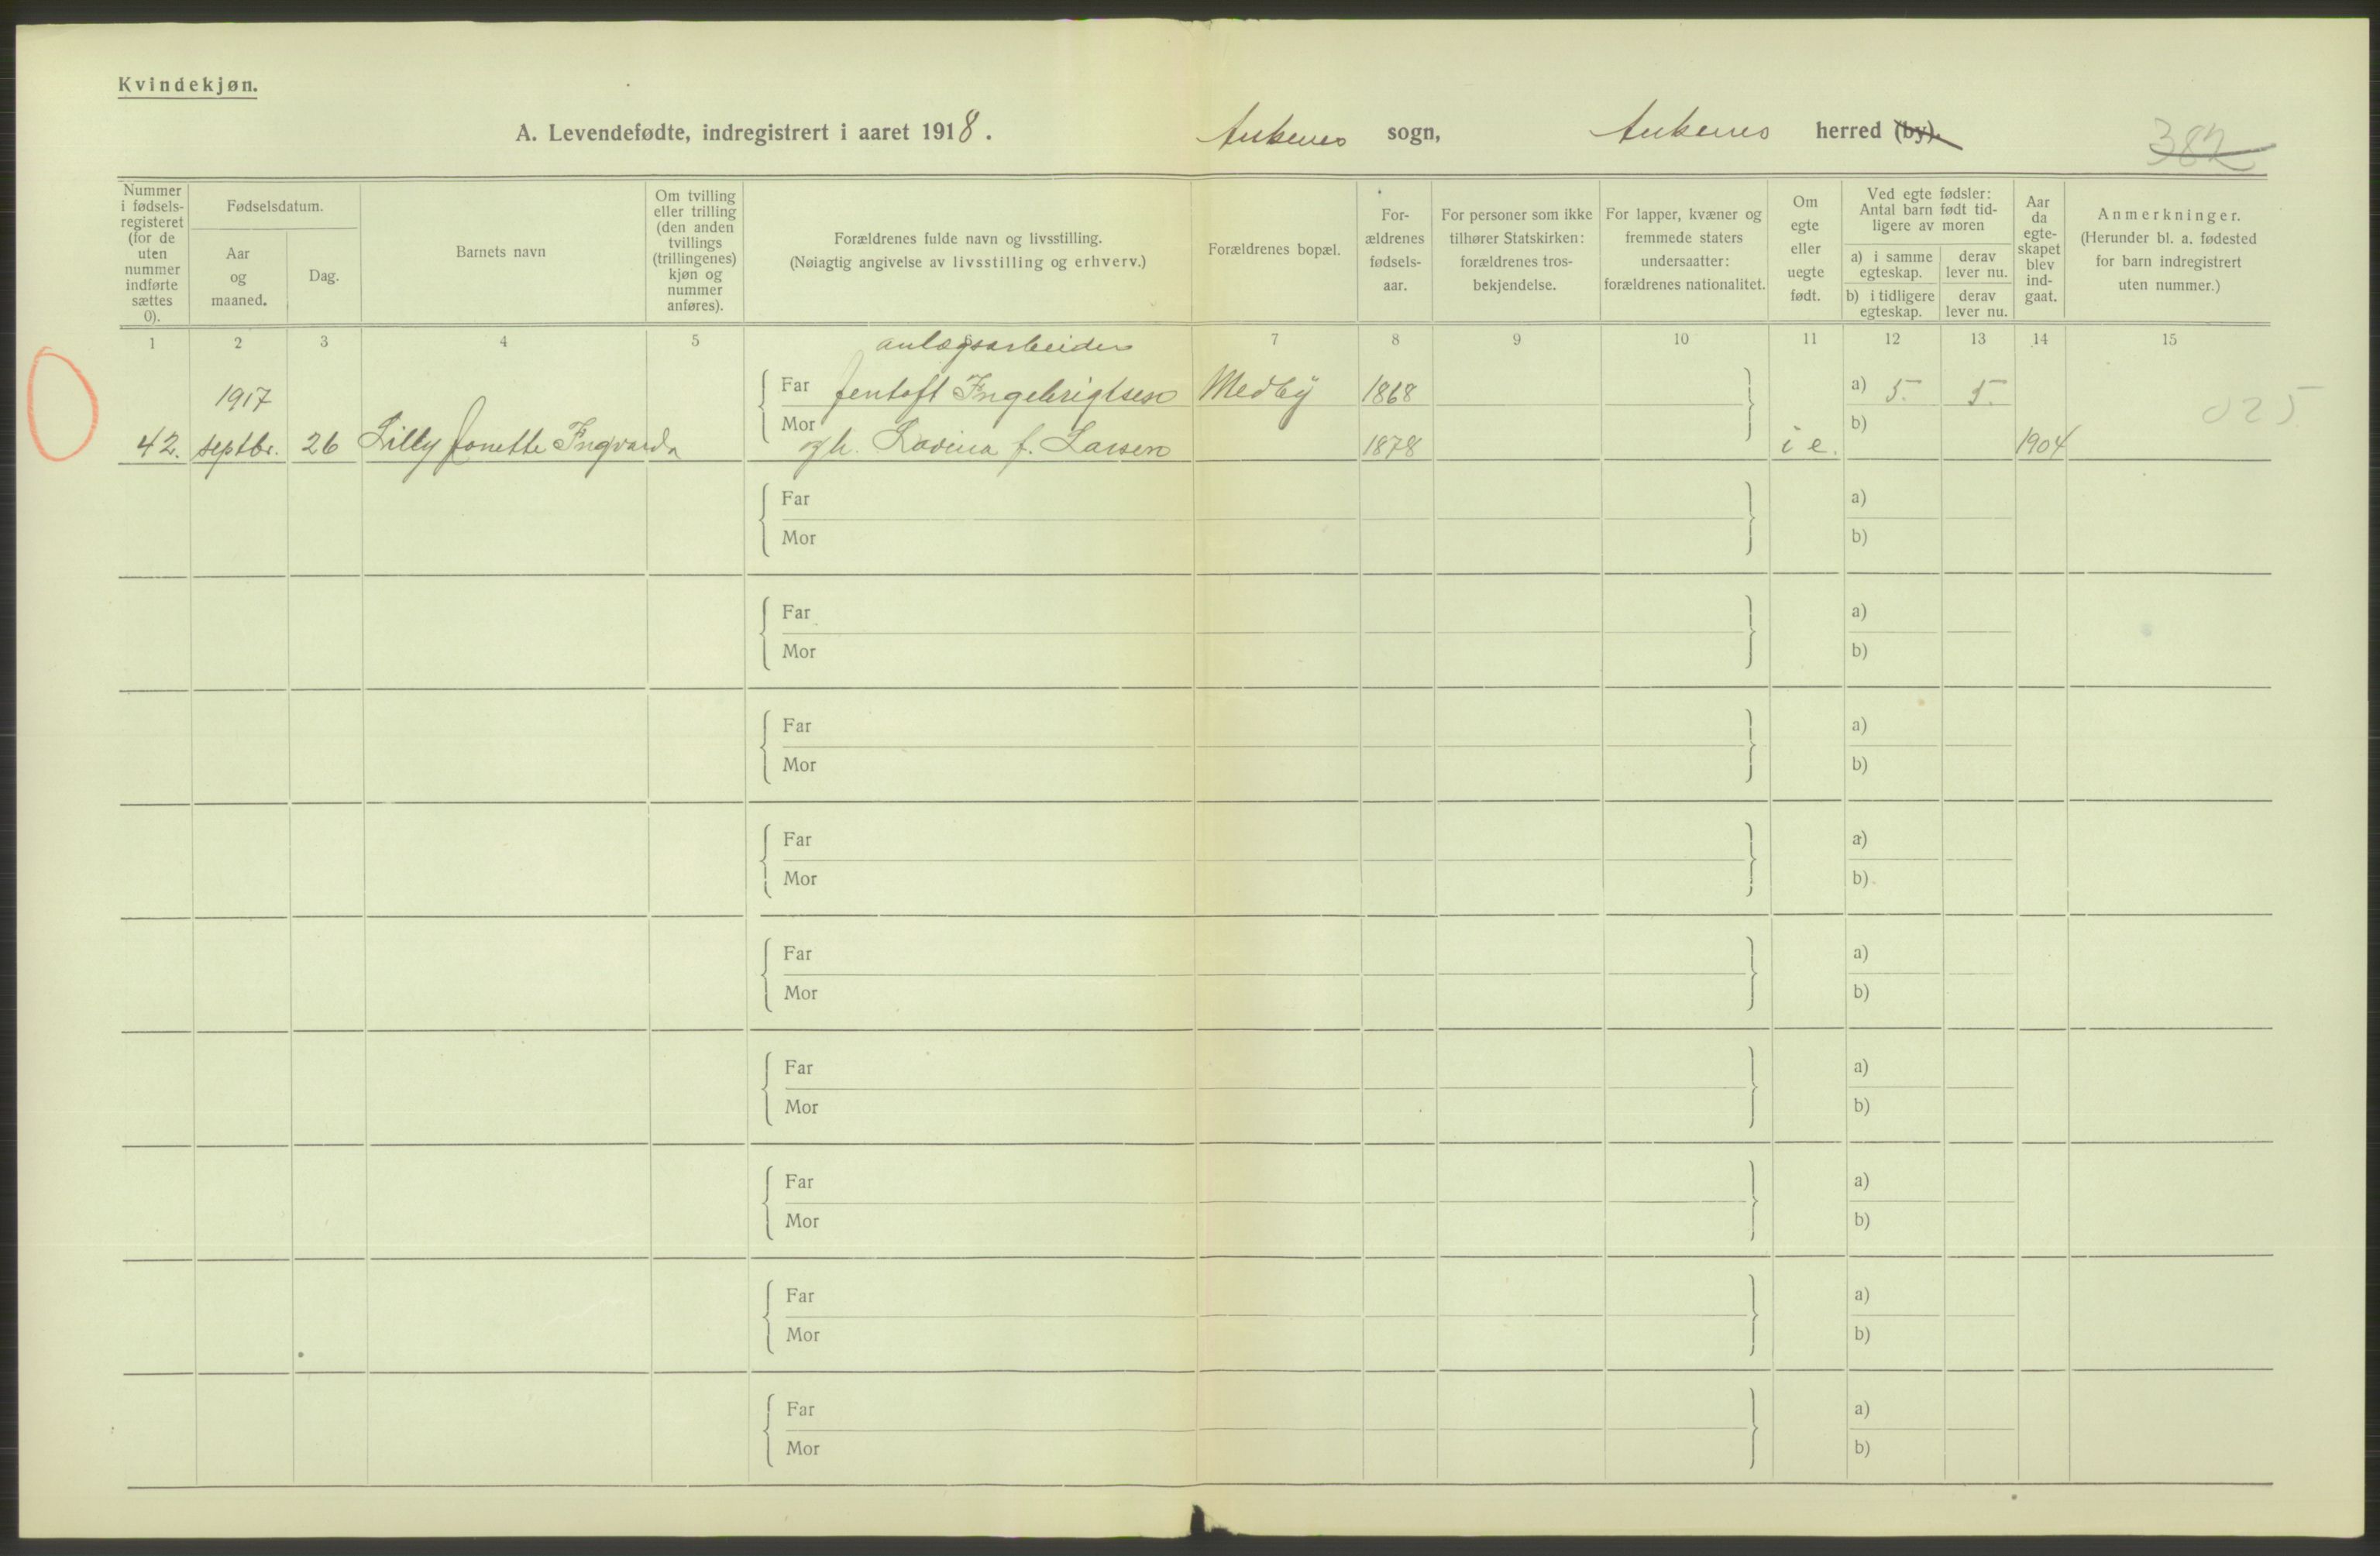 Kvindekjøn.
A. Levendefødte, indregistrert i aaret 1918. Ankenes sogn, Ankenes herred (by).
382
Nummer i fødsels-registeret (for de uten nummer indførte sættes 0).
Fødselsdatum.
Aar og maaned.
Dag.
Barnets navn
Om tvilling eller trilling (den anden tvillings (trillingenes) kjøn og nummer anføres).
Forældrenes fulde navn og livsstilling.
(Nøiagtig angivelse av livsstilling og erhverv.)
Forældrenes bopæl.
For-ældrenes fødsels-aar.
For personer som ikke tilhører Statskirken: forældrenes tros-bekjendelse.
For lapper, kvæner og fremmede staters undersaatter: forældrenes nationalitet.
Om egte eller uegte født.
Ved egte fødsler: Antal barn født tid-ligere av moren
a) i samme egteskap.
derav lever nu.
b) i tidligere egteskap.
derav lever nu.
Aar da egte-skapet blev ind-gaat.
Anmerkninger.
(Herunder bl. a. fødested for barn indregistrert uten nummer.)
1 2 3 4 5 6 7 8 9 10 11 12 13 14 15
anlægsarbeider
1917 Far Jentoft Ingebrigtsen Medby 1868 a) 5. 5. 025
42. septbr. 26 Lilly Jonette Ingvarda Mor og h. Lovina f. Larsen 1878 i e. b) 1904
Far a)
Mor b)
Far a)
Mor b)
Far a)
Mor b)
Far a)
Mor b)
Far a)
Mor b)
Far a)
Mor b)
Far a)
Mor b)
Far a)
Mor b)
Far a)
Mor b)